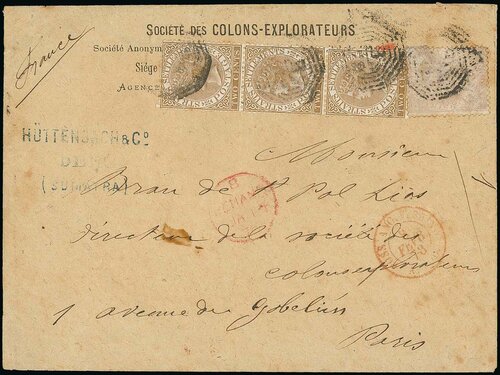 SOCIÉTÉ DES COLONS-EXPLORATEURS
France
Société Anonym
Siège
AGENCE
STRAITS SETTLEMENTS
TWO CENTS
HÜTTENBACH & Co.
DELI
(SUMATRA)
Monsieur
Brau de St Pol Lias
directeur de la société des
colons explorateurs
1 avenue des gobelins
Paris